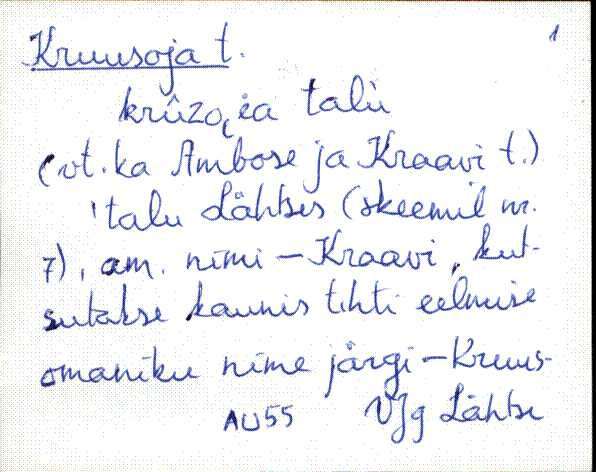 1
Kruusoja t.
krûzo̭i̯a talù
(vt. ka Ambose ja Kraavi t.)
'talu Lähtses (skeemil nr.
7), am. nimi – Kraavi, kut-
sutakse kaunis tihti eelmise
omaniku nime järgi – Kruus-
AU55 VJg Lähtse